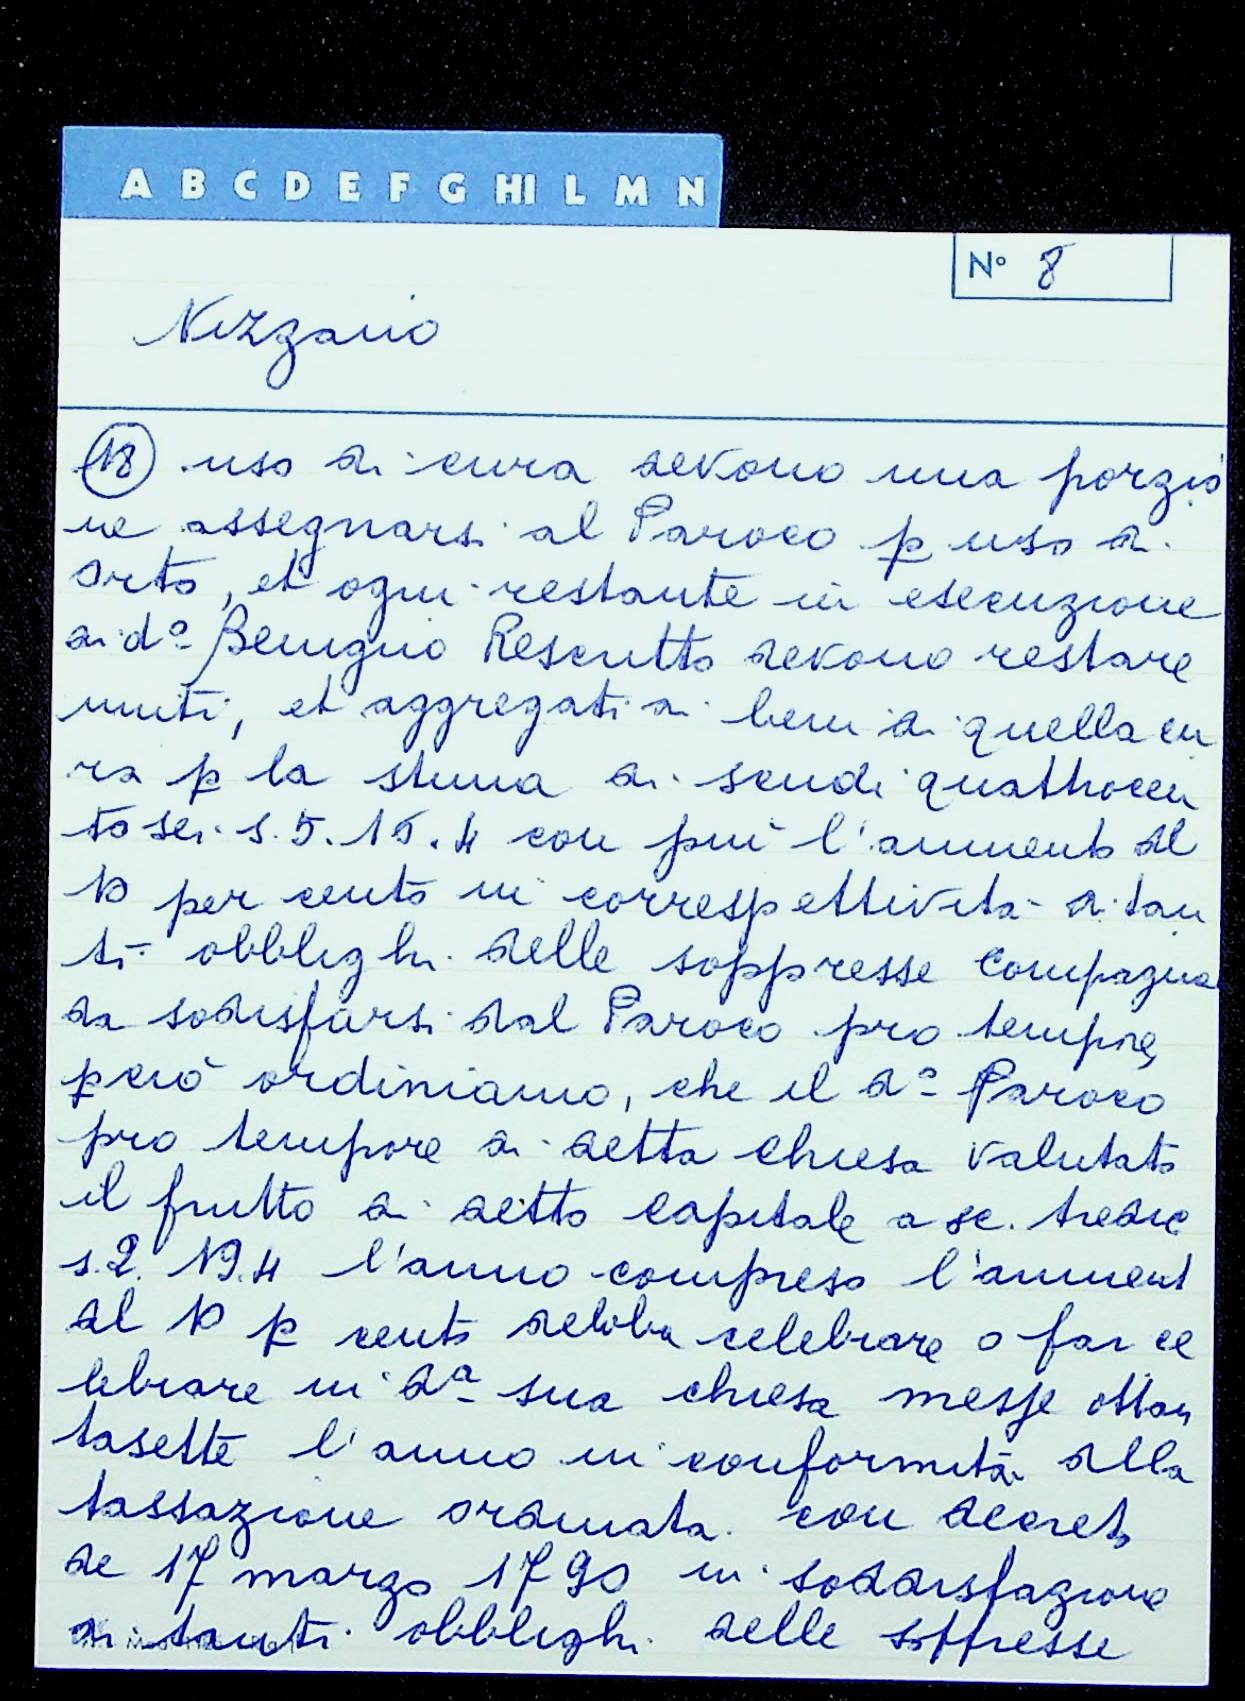 A B C D E F G HI L M N
N° 8
Nizzano
18 uso di cura devono una porzio
ne assegnarsi al Paroco p uso di
orto, et ogni restante in esecuzione
di d° Benigno Rescritto devono restare
uniti, et aggregati ai beni di quella cu
ra p la stima di scudi quattrocen
to sei s. 5. 15. 4 con più l'aumento al
10 per cento in correspettività di tan
ti obblighi delle soppresse Compagnie
da sodisfarsi dal Paroco pro tempore,
però ordiniamo, che il d° Paroco
pro tempore di detta Chiesa valutato
il frutto di detto Capitale a sc. tredic
s. 2. 19. 4 l'anno compreso l'aument
al 10 p cento debba celebrare o far ce
lebrare in da sua chiesa messe ottan
tasette l'anno in conformità alla
tassazione ordinata con decreto
de 17 marzo 1790 in soddisfazione
di tanti obblighi delle soppresse